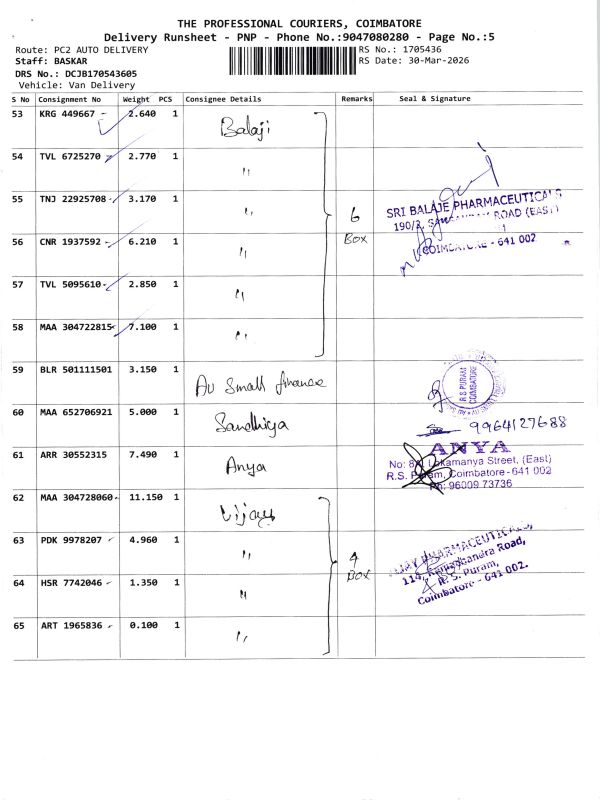 THE PROFESSIONAL COURIERS, COIMBATORE
Delivery Runsheet - PNP - Phone No.:9047080280 - Page No.:5
Route: PC2 AUTO DELIVERY RS No.: 1705436
Staff: BASKAR RS Date: 30-Mar-2026
DRS No.: DCJB170543605
Vehicle: Van Delivery
S No Consignment No Weight PCS Consignee Details Remarks Seal & Signature
53 KRG 449667 2.640 1 Balaji
54 TVL 6725270 2.770 1 "
55 TNJ 22925708 3.170 1 " 6 BOX
SRI BALAJE PHARMACEUTICALS
190/ ROAD (EAST)
COIMBATORE - 641 002
56 CNR 1937592 6.210 1 "
57 TVL 5095610 2.850 1 "
58 MAA 304722815 7.100 1 "
59 BLR 501111501 3.150 1 Au Small finance
R.S PURAM
COIMBATORE
60 MAA 652706921 5.000 1 Sandhiya 9964127688
61 ARR 30552315 7.490 1 Anya
ANYA
No: 8/ Lokamanya Street, (East)
R.S. Puram, Coimbatore - 641 002
Ph: 96009 73736
62 MAA 304728060 11.150 1 Vijay
63 PDK 9978207 4.960 1 " 4 BOX
VIJAY PHARMACEUTICALS
114, Ramachandra Road,
R. S. Puram,
Coimbatore - 641 002.
64 HSR 7742046 1.350 1 "
65 ART 1965836 0.100 1 "